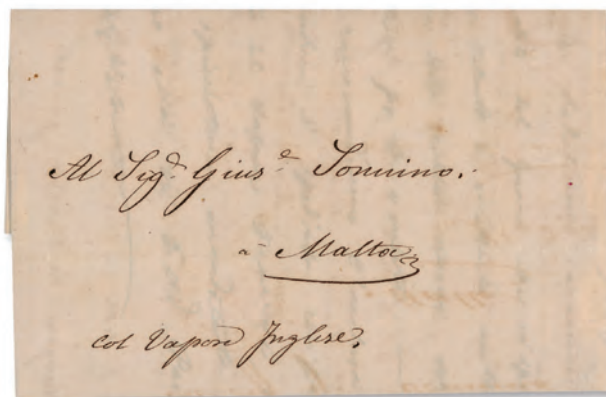 Al Sig.r Gius.e Sonnino.
a Malta
col Vapore Inglese.